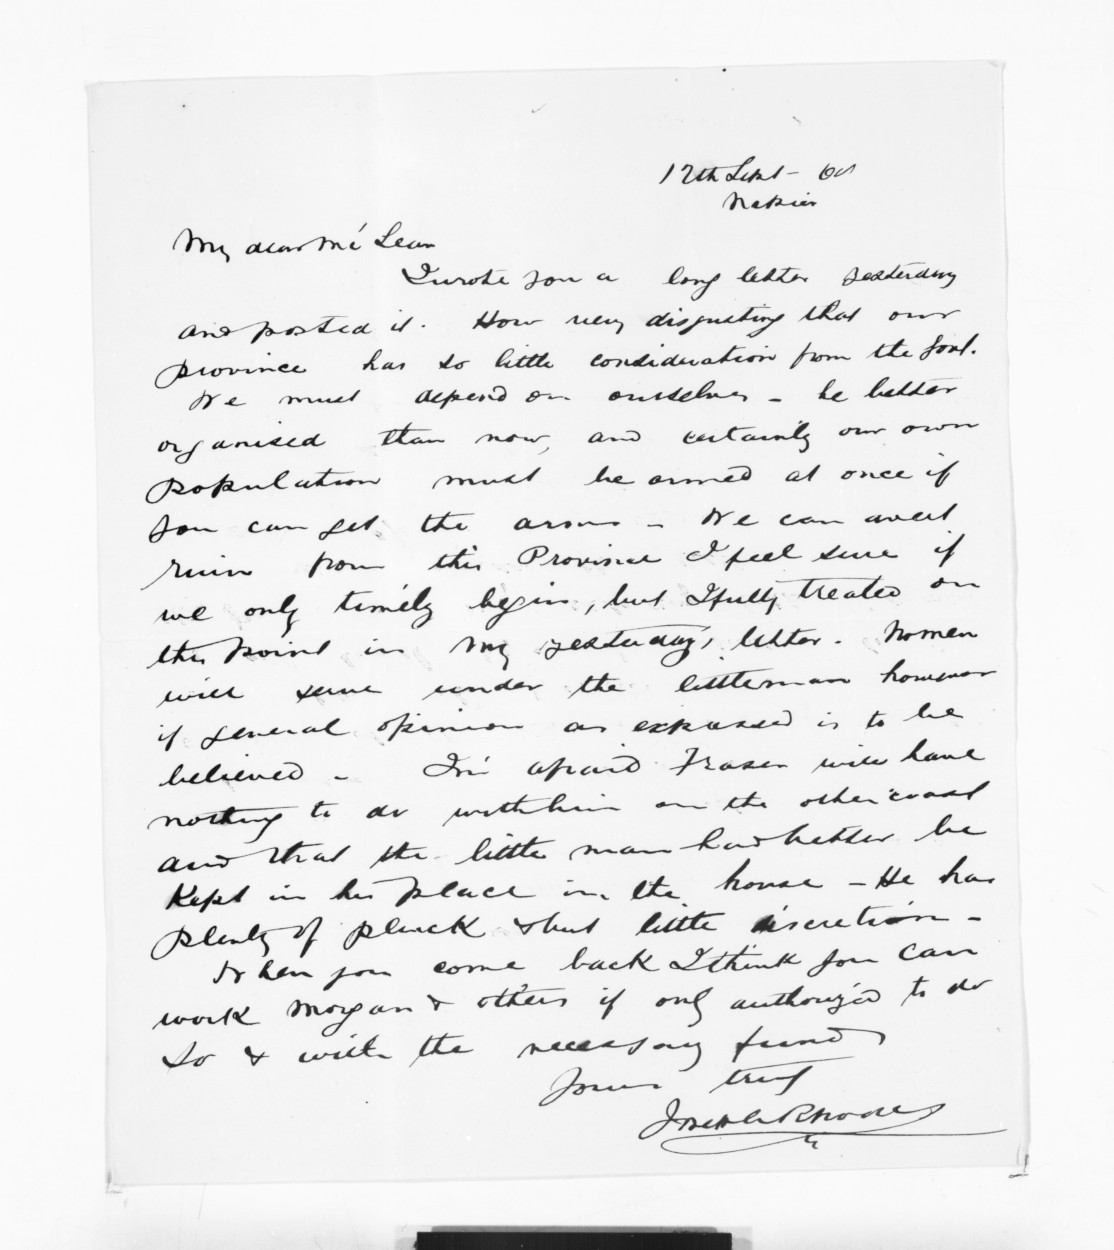 12th Sept - 68
Napier
My dear McLean
I wrote you a long letter yesterday
and posted it. How very disgusting that our
province has so little consideration from the Govt.
We must depend on ourselves - be better
organised than now, and certainly our own
population must be armed at once if
you can get the arms - We can avert
ruin from this Province I feel sure if
we only timely begin, but I fully treated on
this point in my yesterday's letter. No men
will serve under the little man however
if general opinion as expressed is to be
believed - I'm afraid Fraser will have
nothing to do with him on the other coast
and that the little man had better be
kept in his place in the house - He has
plenty of pluck & but little discretion -
When you come back I think you can
work Morgan & others if only authoriz'd to do
so & with the necessary funds
Yours truly
Joseph Rhodes